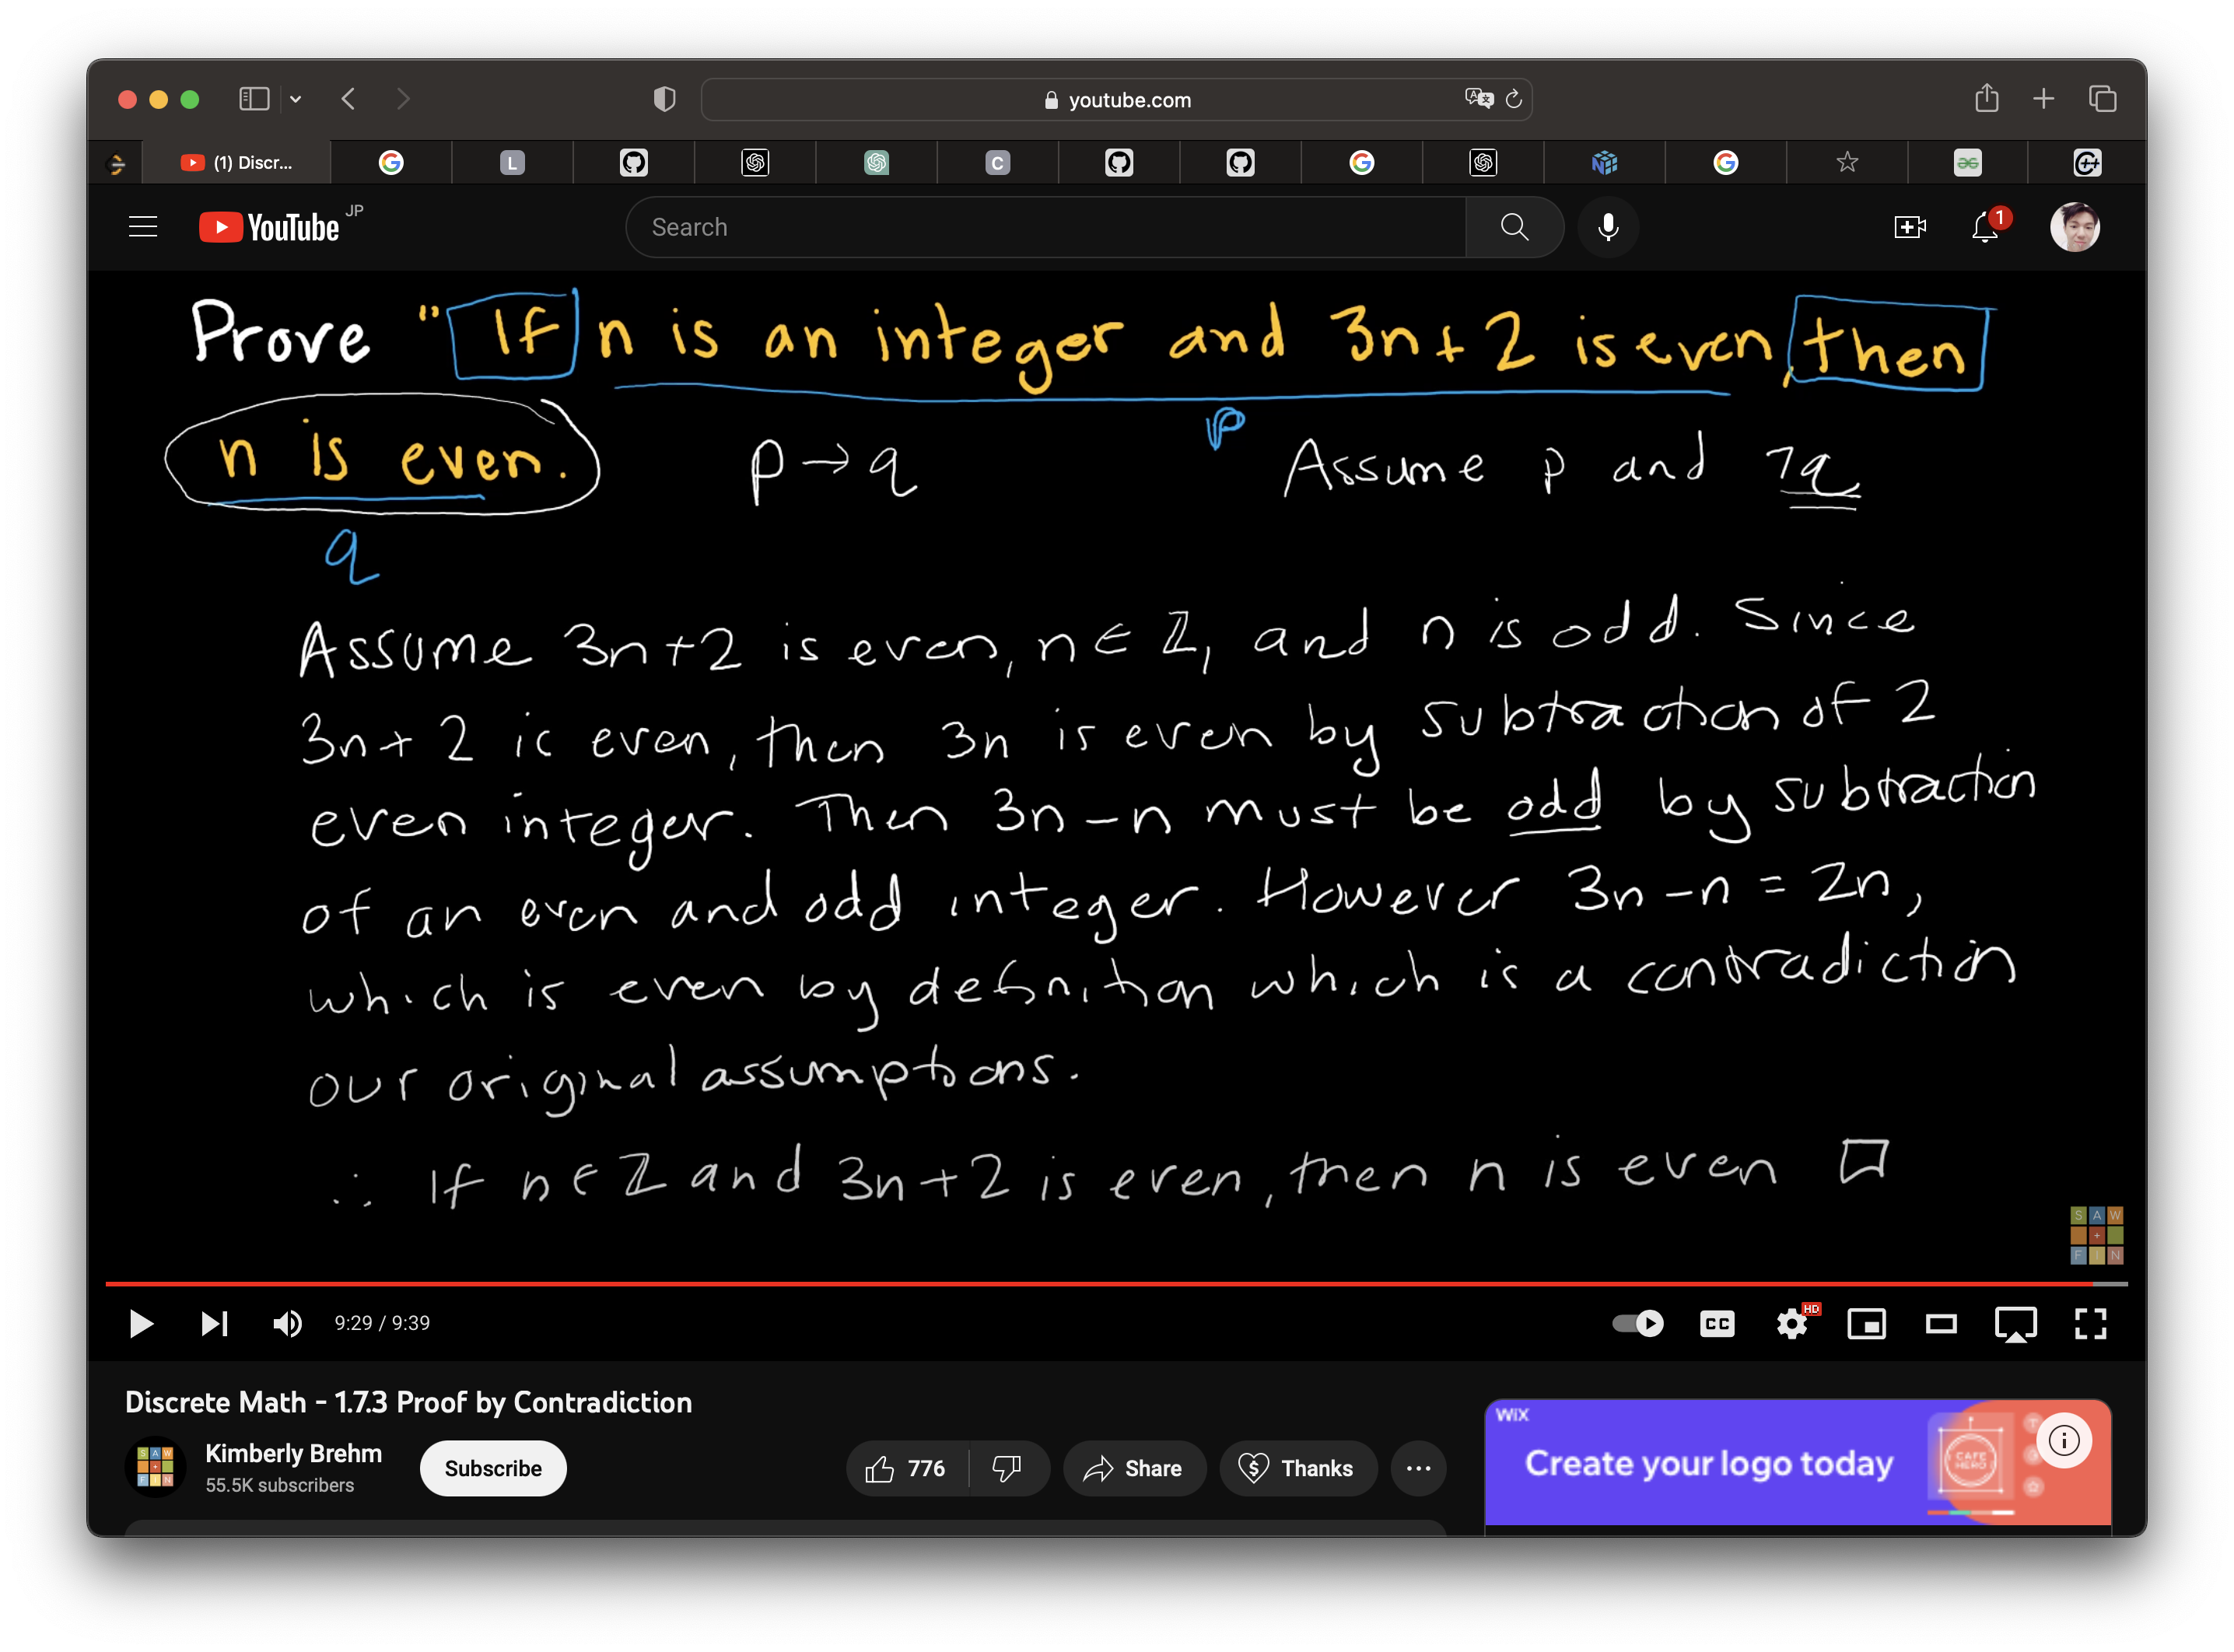 youtube.com
(1) Discr...
L
C
YouTube JP
Search
1
Prove "If n is an integer and 3n+2 is even, then
n is even. p→q p Assume p and ¬q
q
Assume 3n+2 is even, n∈ℤ, and n is odd. Since
3n+2 is even, then 3n is even by subtraction of 2
even integer. Then 3n-n must be odd by subtraction
of an even and odd integer. However 3n-n = 2n,
which is even by definition which is a contradiction
our original assumptions.
∴ If n∈ℤ and 3n+2 is even, then n is even □
S A W
+
F I N
9:29 / 9:39
CC
HD
Discrete Math - 1.7.3 Proof by Contradiction
Kimberly Brehm
55.5K subscribers
Subscribe
776
Share
Thanks
WiX
Create your logo today
CAFE
HERO